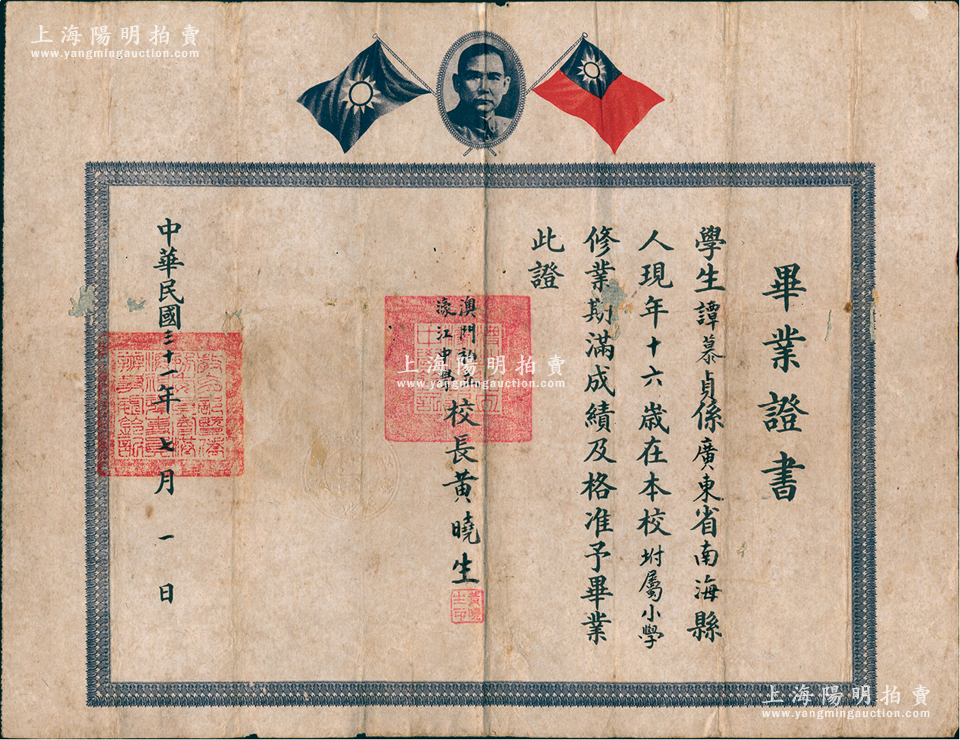 上海陽明拍賣
www.yangmingauction.com
畢業證書
學生譚慕貞係廣東省南海縣
人現年十六歲在本校坿屬小學
修業期滿成績及格准予畢業
此證
澳門私立
濠江中學
校長黃曉生
黃曉
生印
中華民國三十一年七月一日
上海陽明拍賣
www.yangmingauction.com
上海陽明拍賣
www.yangmingauction.com